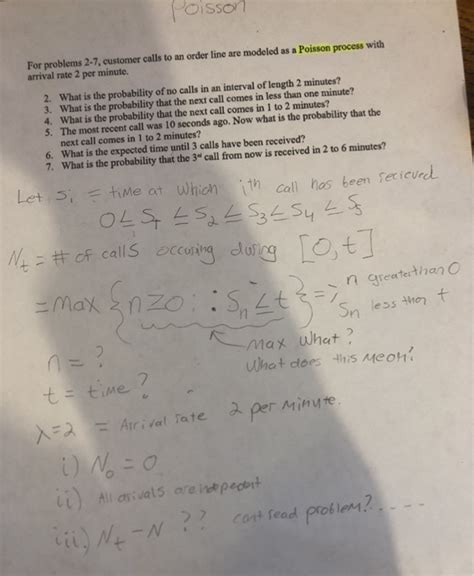 Poisson
For problems 2-7, customer calls to an order line are modeled as a Poisson process with
arrival rate 2 per minute.
2. What is the probability of no calls in an interval of length 2 minutes?
3. What is the probability that the next call comes in less than one minute?
4. What is the probability that the next call comes in 1 to 2 minutes?
5. The most recent call was 10 seconds ago. Now what is the probability that the
next call comes in 1 to 2 minutes?
6. What is the expected time until 3 calls have been received?
7. What is the probability that the 3rd call from now is received in 2 to 6 minutes?
Let Si = time at which ith call has been recieved
0 ≤ S1 ≤ S2 ≤ S3 ≤ S4 ≤ S5
Nt = # of calls occuring during [0,t]
= max {n≥0 : Sn ≤ t} => n greater than 0
Sn less than t
max what?
What does this mean?
n = ?
t = time?
λ=2 = Arrival rate 2 per minute.
i) N0 = 0
ii) All arivals are indepedent
iii.) Nt - N ?? cant read problem?....